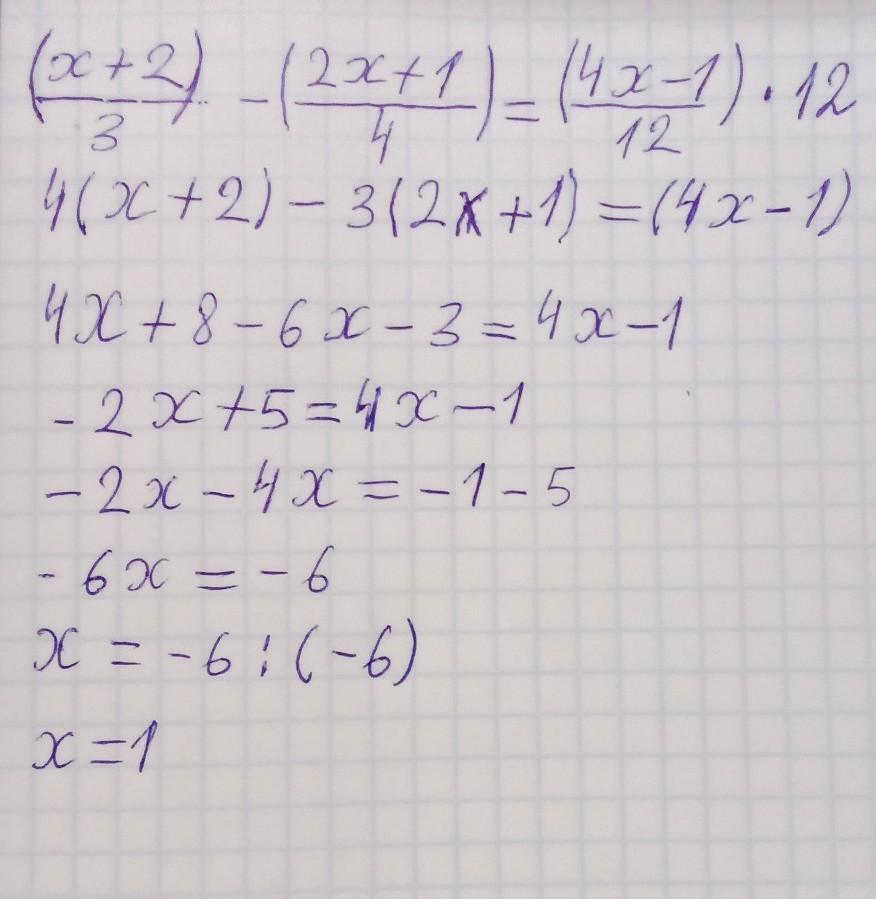 (x+2)/3 - (2x+1/4) = (4x-1/12) · 12
4(x+2) - 3(2x+1) = (4x-1)
4x+8-6x-3=4x-1
-2x+5=4x-1
-2x-4x=-1-5
-6x=-6
x=-6:(-6)
x=1